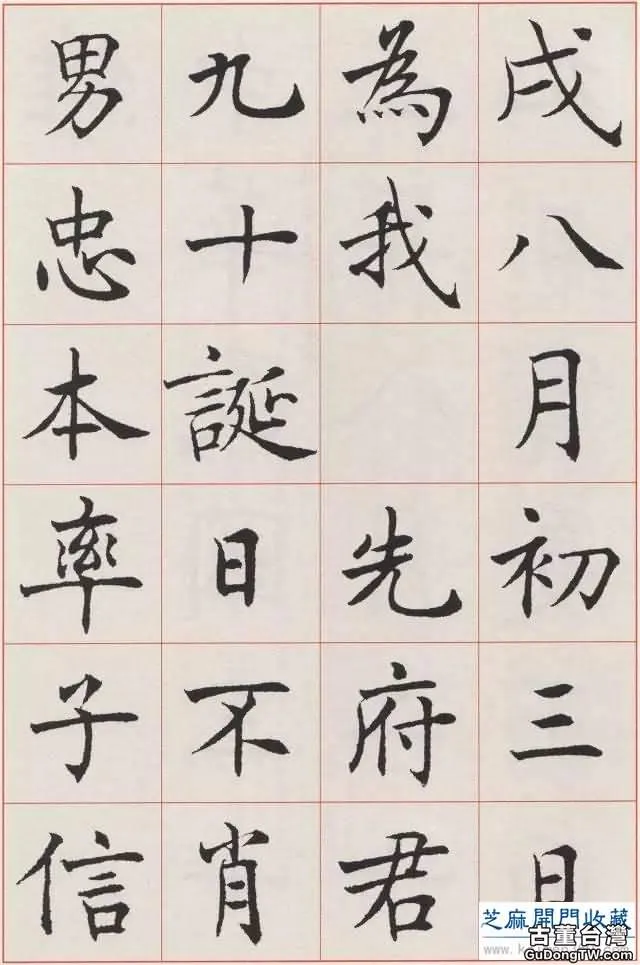 戌八月初三日
為我先府君
九十誕日不肖
男忠本率子信
芝麻開門收藏
古董台灣
GuDongTW.com